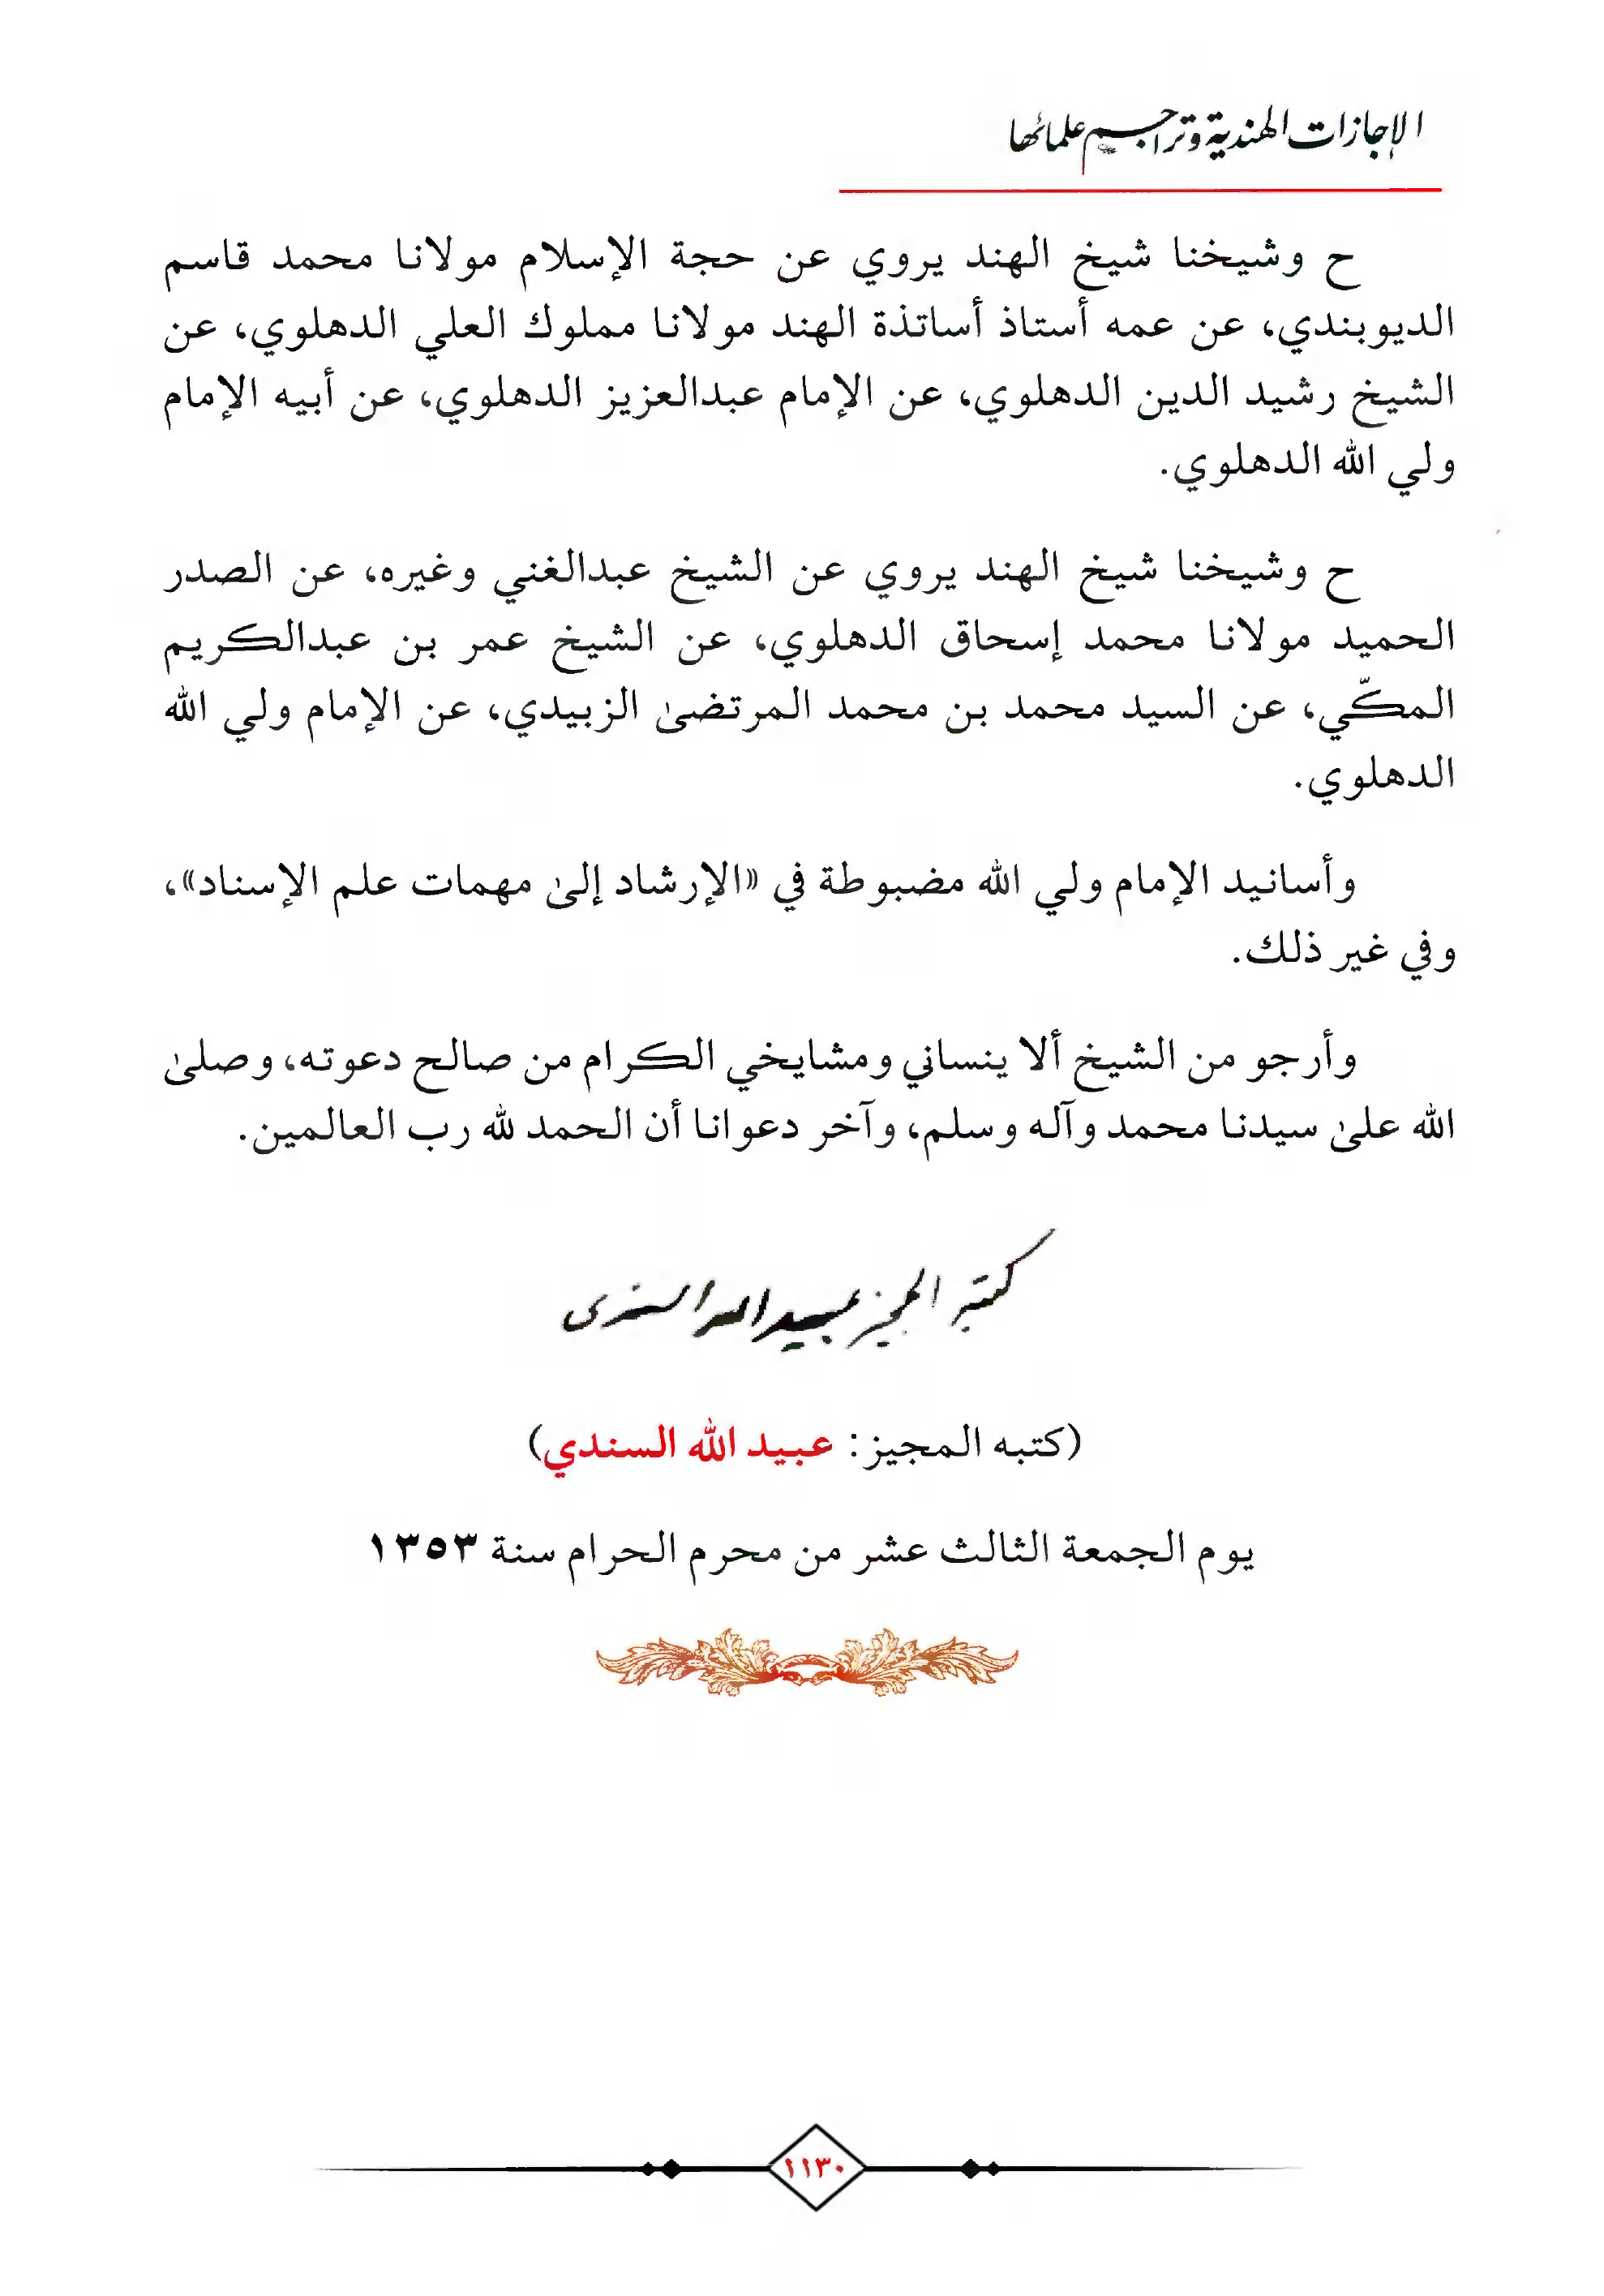 الإجازات الهندية وتراجم علمائها
ح وشيخنا شيخ الهند يروي عن حجة الإسلام مولانا محمد قاسم
الديوبندي، عن عمه أستاذ أساتذة الهند مولانا مملوك العلي الدهلوي، عن
الشيخ رشيد الدين الدهلوي، عن الإمام عبدالعزيز الدهلوي، عن أبيه الإمام
ولي الله الدهلوي.
ح وشيخنا شيخ الهند يروي عن الشيخ عبدالغني وغيره، عن الصدر
الحميد مولانا محمد إسحاق الدهلوي، عن الشيخ عمر بن عبدالكريم
المكّي، عن السيد محمد بن محمد المرتضىٰ الزبيدي، عن الإمام ولي الله
الدهلوي.
وأسانيد الإمام ولي الله مضبوطة في «الإرشاد إلىٰ مهمات علم الإسناد»،
وفي غير ذلك.
وأرجو من الشيخ ألا ينساني ومشايخي الكرام من صالح دعوته، وصلىٰ
الله علىٰ سيدنا محمد وآله وسلم، وآخر دعوانا أن الحمد لله رب العالمين.
كتبه المجيز عبيد الله السندى
(كتبه المجيز: عبيد الله السندي)
يوم الجمعة الثالث عشر من محرم الحرام سنة ١٣٥٣
١١٣٠